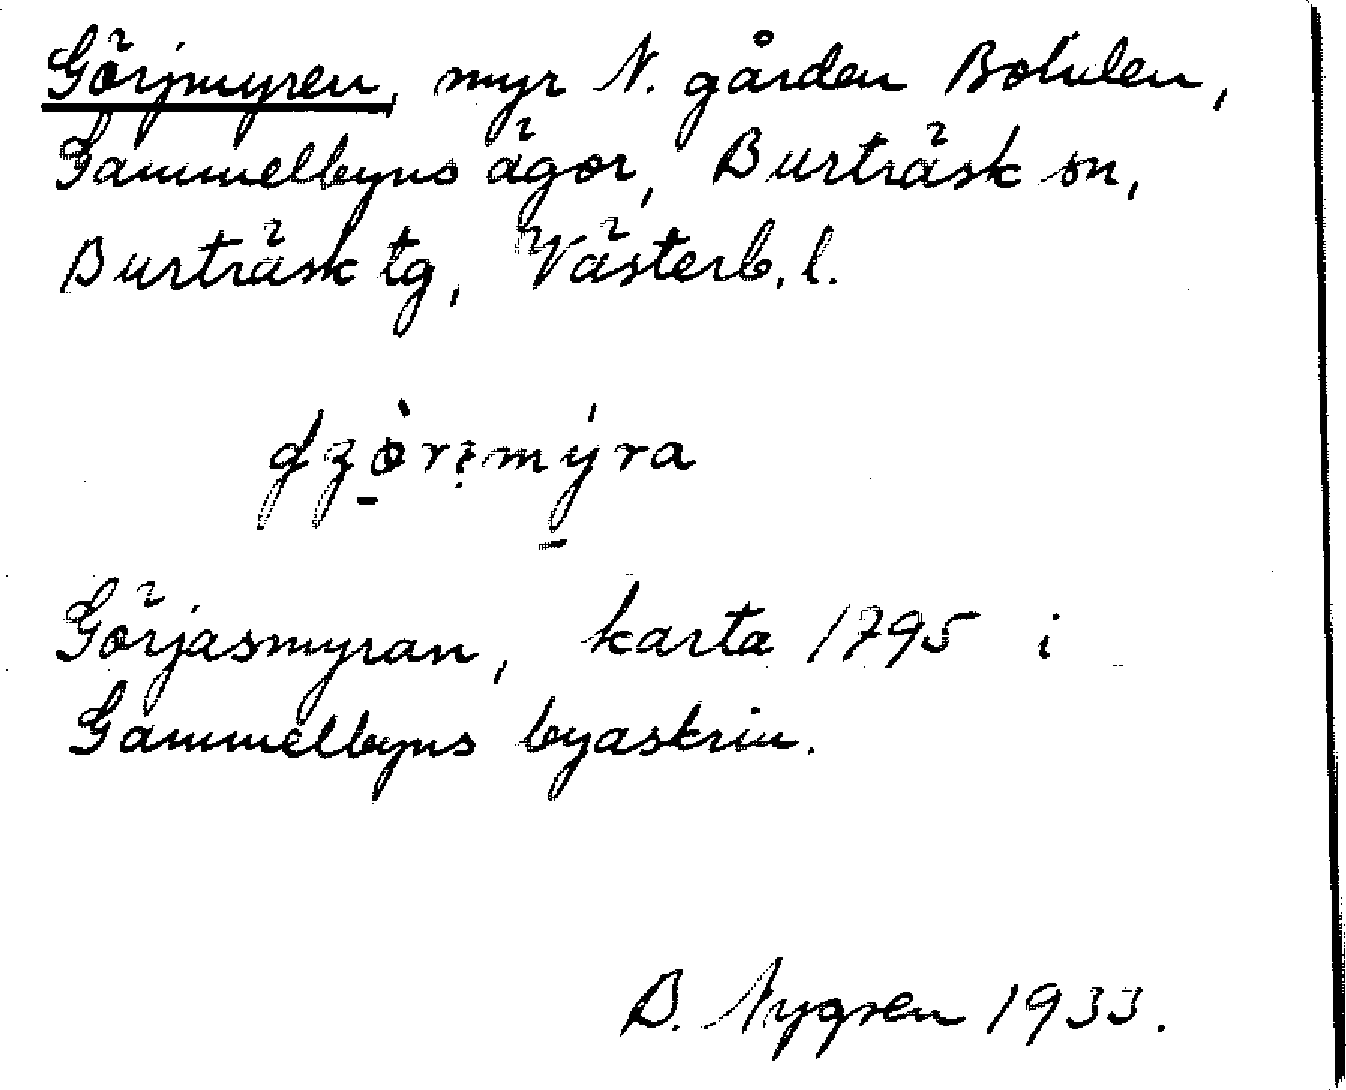 Görjmyren, myr N. gården Botulen,
Gammelbyns ägor, Burträsk sn,
Burträsk tg, Västerb. l.
Görjasmyran, karta 1795 i
Gammelbyns byaskrin.
B. Nygren 1933.